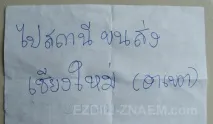 ไปสถานีขนส่ง
เชียงใหม่ (อาเขต)
EZDILI-ZNAEM.com